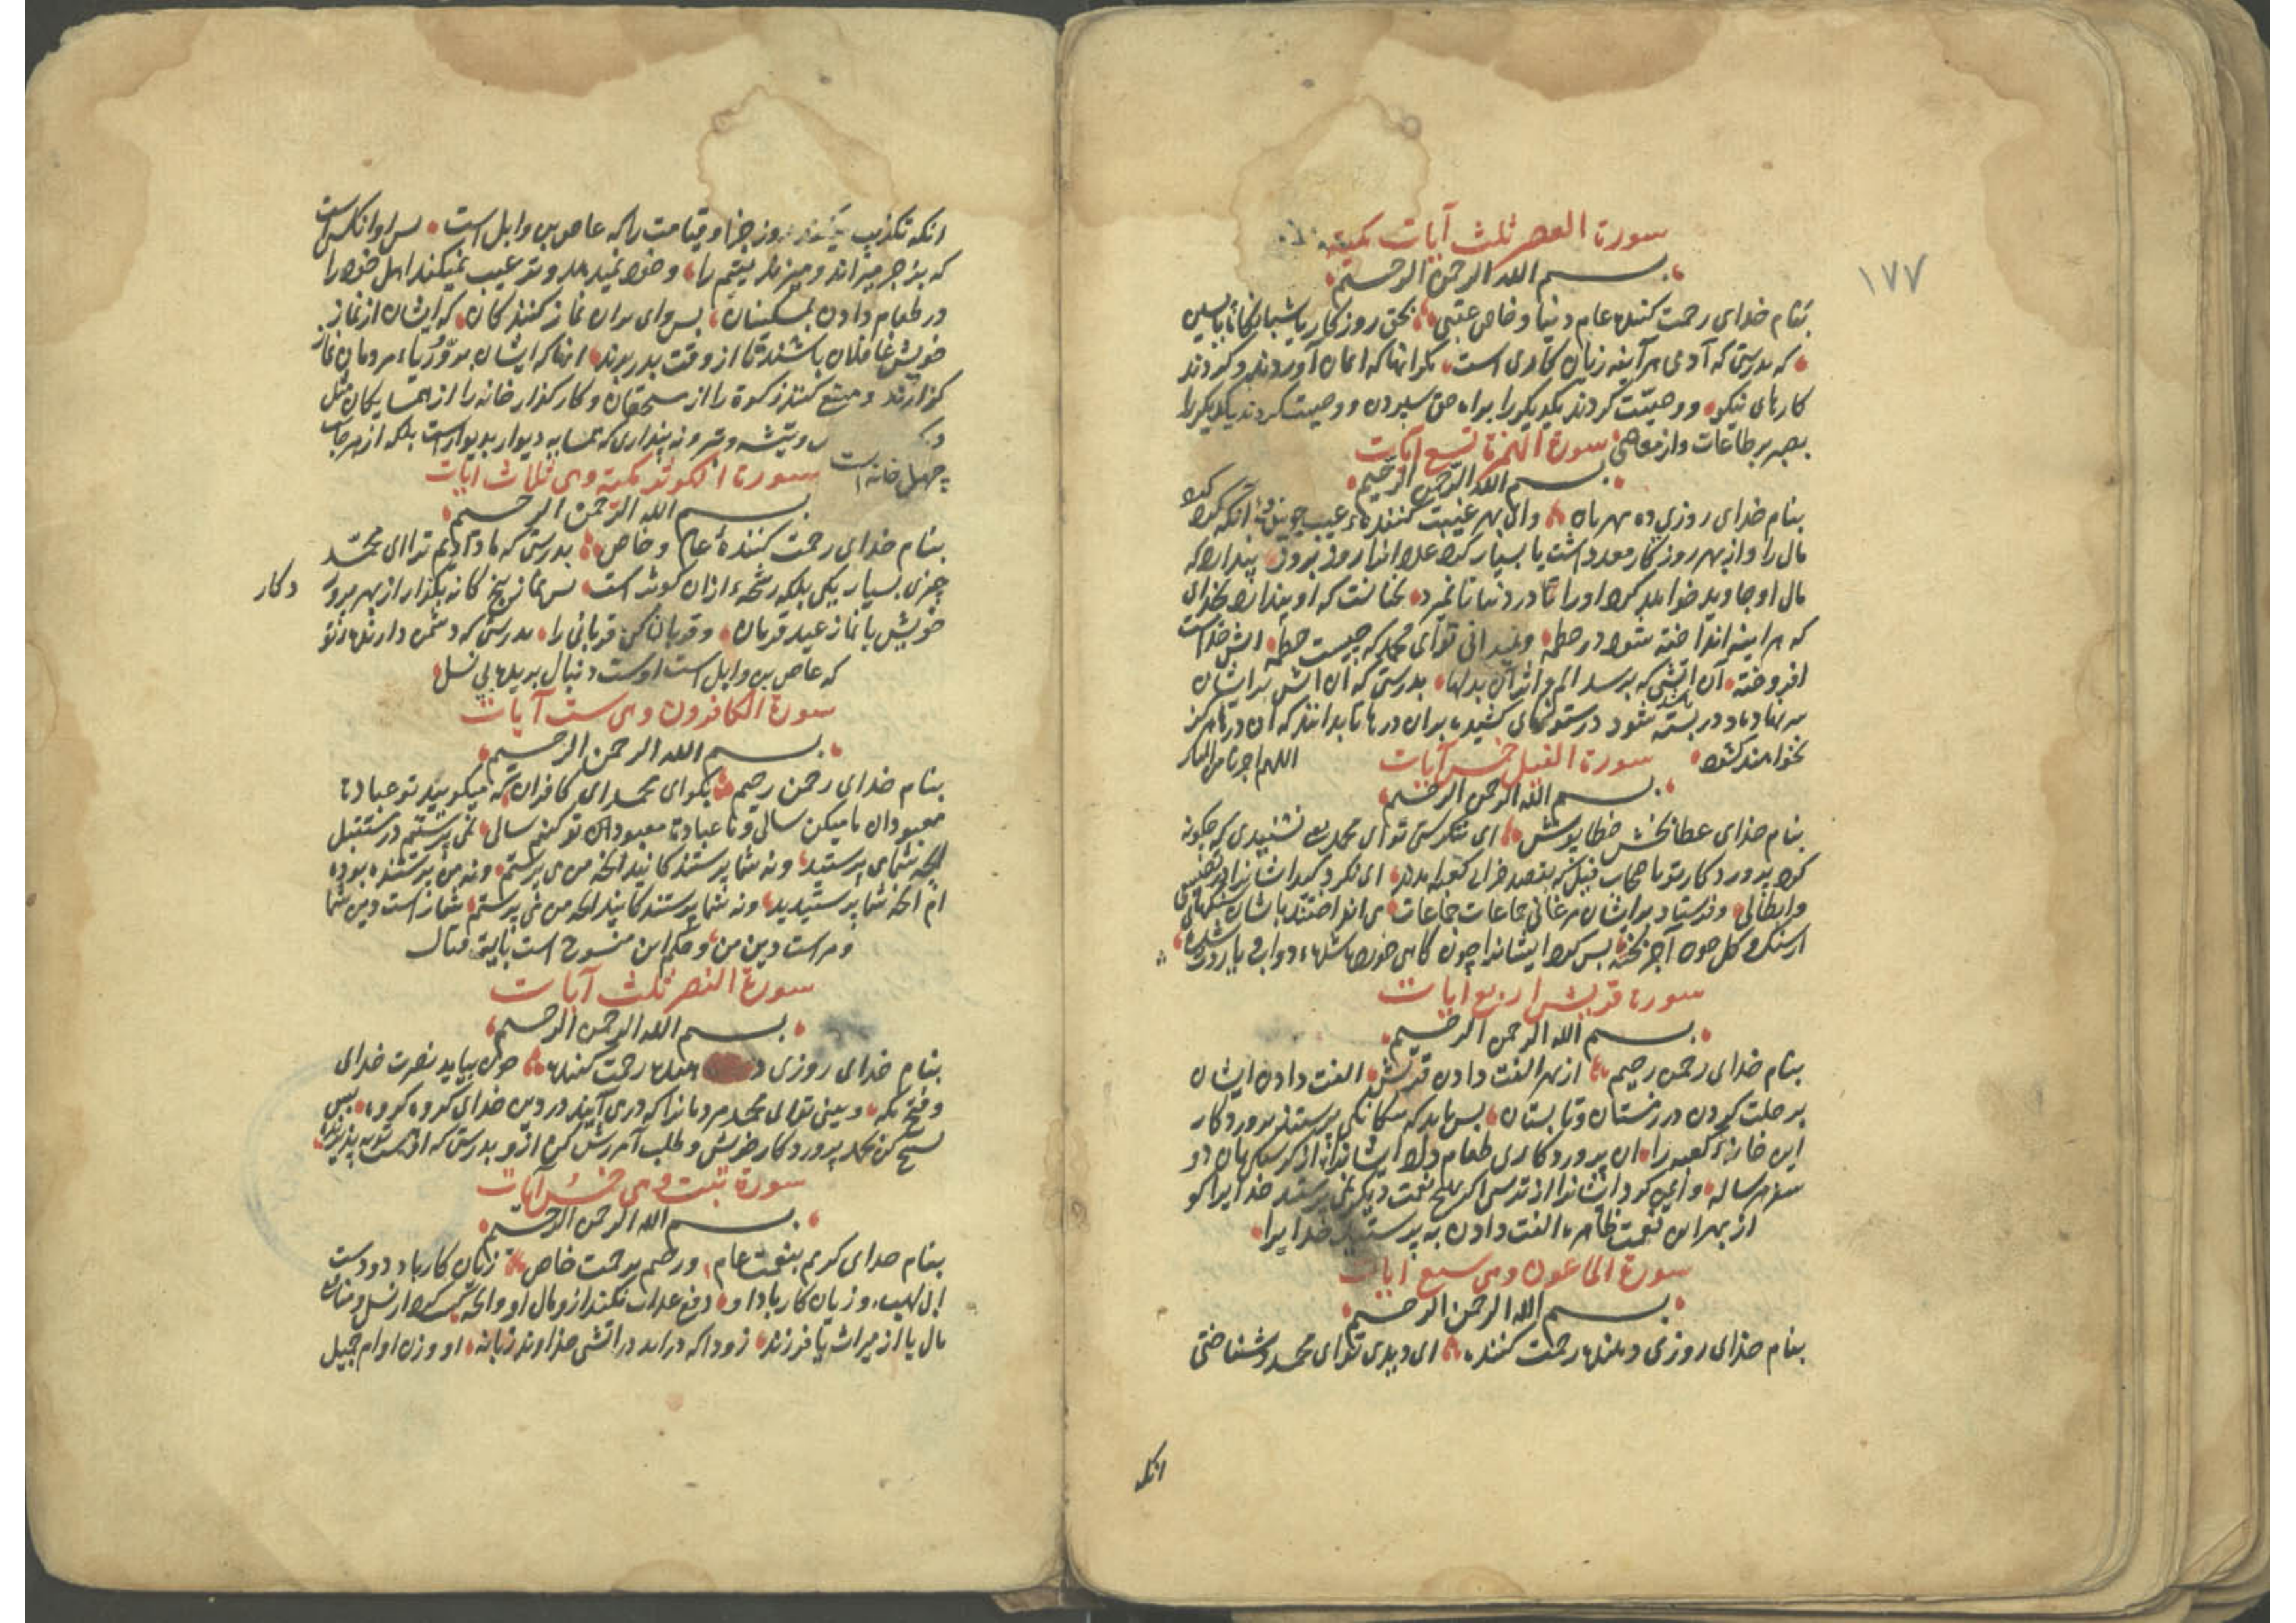 ١٧٧
سورة العصر ثلث آيات مكية
بسم الله الرحمن الرحيم
بنام خدای رحمت کننده عام دنیا و خاص عقبی بحق روزکار یا شبانکاه یا پسین
که بدرستی که آدمی هر آینه زیان کاری است مکر انها که ایمان آوردند و کردند
کارهای نیکو و وصیت کردند یکدیکر را براه حق سپردن و وصیت کردند یکدیکر را
بصبر بر طاعات و از معاصی سورة الهمزة تسع آيات
بسم الله الرحمن الرحيم
بنام خدای روزی ده مهربان وای بهر غیبت کننده عیب جوینده انکه کرد
مال را و از بهر روزکار معد داشت یا بسیار کرد عدد انرا روز بروز پندارد که
مال او جاوید خواهد کرد او را تا در دنیا تا نمیرد نخانست که او پندارد بخدای
که هر اینه انداخته شود در حطمه و نمیدانی تو ای محمد که چیست حطمه اتش خداست
افروخته آن اتشی که برسد الم و اثر آن بدلها بدرستی که آن اتش بر ایشان
سر نهاده در بسته شود در ستونهای کشیده بران درها تا بدانند که آن درها هرکز
نخواهند کشود سورة الفيل خمس آيات اللهم اجرنا من النار
بسم الله الرحمن الرحيم
بنام خدای عطا بخش خطا پوش ای ننکرستی تو ای محمد نشنیدی که چکونه
کرد پروردکار تو با صحاب فیل که بقصد خرابی کعبه امدند ای نکرد کید ایشانرا در
و ابطالی و فرستاد بر ایشان مرغانی جماعات جماعات می انداختند باشان سنکهائی
از سنک و کل چون آجر پخته پس کرد ایشانرا چون کاهی خورده شده دواب
سورة قريش اربع آيات
بسم الله الرحمن الرحيم
بنام خدای رحمن رحیم از بهر الفت دادن قریش الفت دادن ایشان
بر حلت کردن در زمستان و تابستان پس باید که بیکانکی پرستند پروردکار
این خانه کعبه را ان پروردکاری طعام داد ایشانرا از کرسنکی بان دو
سفر هر ساله و ایمن کرد ایشانرا از ترسی اکر بهیچ نعمت دیکر نمی پرستند خدایرا کو
از بهر این نعمت ظاهره الفت دادن به پرستید خدایرا
سورة الماعون وهي سبع آيات
بسم الله الرحمن الرحيم
بنام خدای روزی دهنده رحمت کننده ای دیدی تو ای محمد و شناختی
انکه
انکه تکذیب میکند بروز جزا و قیامت را که عاص بن وابل است پس او انکس است
که بزجر میراند و میزند یتیم را و خود نمیدهد و ترغیب نمیکند اهل خود را
در طعام دادن بمسکینان پس وای بران نماز کنندکان که ایشان از نماز
خویش غافلان باشند تا از وقت بدر برند انها که ایشان بروّ و ریاء مردمان نماز
کزارند و منع کنند زکوة را از مستحقان و کار کذار خانه را از همسایکان مثل
دیک و تیشه و تبر و نه پنداری که همسایه دیوار بدیوار است بلکه از هر جانب
چهل خانه است سورة الكوثر مكية وهي ثلاث ايات
بسم الله الرحمن الرحيم
بنام خدای رحمت کنندهٔ عام و خاص بدرستی که ما دادیم ترا ای محمّد
چیزی بسیار نیکی بلکه رشحهٔ از ان کوثر است پس نماز پنج کانه بکزار از بهر پرور
دکار
خویش یا نماز عید قربان و قربان کن قربانی را بدرستی که دشمن دارنده تو
که عاص بن وابل است اوست دنبال بریده بی نسل
سورة الكافرون وهي ست آيات
بسم الله الرحمن الرحيم
بنام خدای رحمن رحیم بکو ای محمد ای کافران که میکویید تو عبادت
معبودان ما میکن سالی و ما عبادت معبودان تو کنیم سالی نمی پرستم در مستقبل
انچه شما می پرستید و نه شما پرستندکانید انچه من می پرستم و نه من پرستنده بوده
ام انچه شما پرستیدید و نه شما پرستندکانید انچه من می پرستم شما راست دین شما
و مراست دین من و حکم این منسوخ است بآیه قتال
سورة النصر ثلث آيات
بسم الله الرحمن الرحيم
بنام خدای روزی دهنده رحمت کننده چون بیاید نصرت خدای
و فتح مکه و بینی تو ای محمد مردمانرا که در می آیند در دین خدای کروه کروه پس
تسبیح کن بحمد پروردکار خویش و طلب آمرزش کن از و بدرستی که اوست توبه پذیرنده
سورة تبت وهي خمس آيات
بسم الله الرحمن الرحيم
بنام خدای کریم بنعمت عام و رحیم برحمت خاص زیان کار باد دو دست
ابی لهب و زیان کار باد او دفع عذاب نکند از و مال او و انچه کسب کرد از نسل و متاع
مال یا از میراث یا فرزند زود اکه دراید در اتشی خداوند زبانه او و زن او ام جمیل